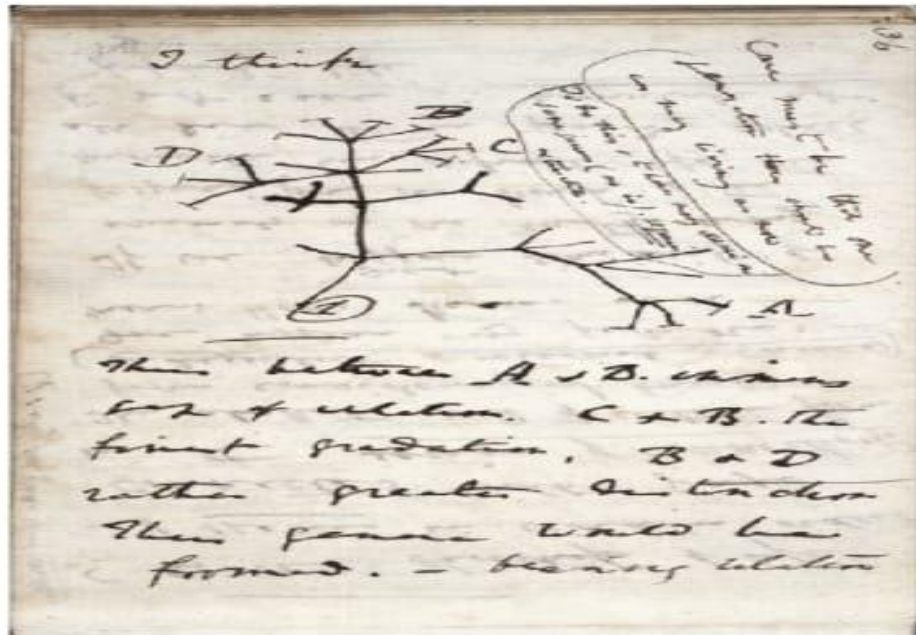 36
I think
Case must be that one
generation then should be
as many living as now
To do this & to have many species in
same genus (as is). requires
extinction.
B
D
C
1
A
Thus between A & B. immens
gap of relation. C & B. the
finest gradation, B & D
rather greater distinction
Thus genera would be
formed. — bearing relation